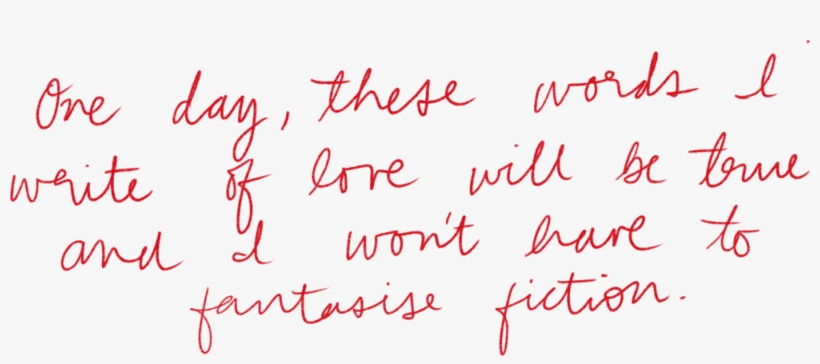 One day, these words I
write of love will be true
and I won't have to
fantasise fiction.